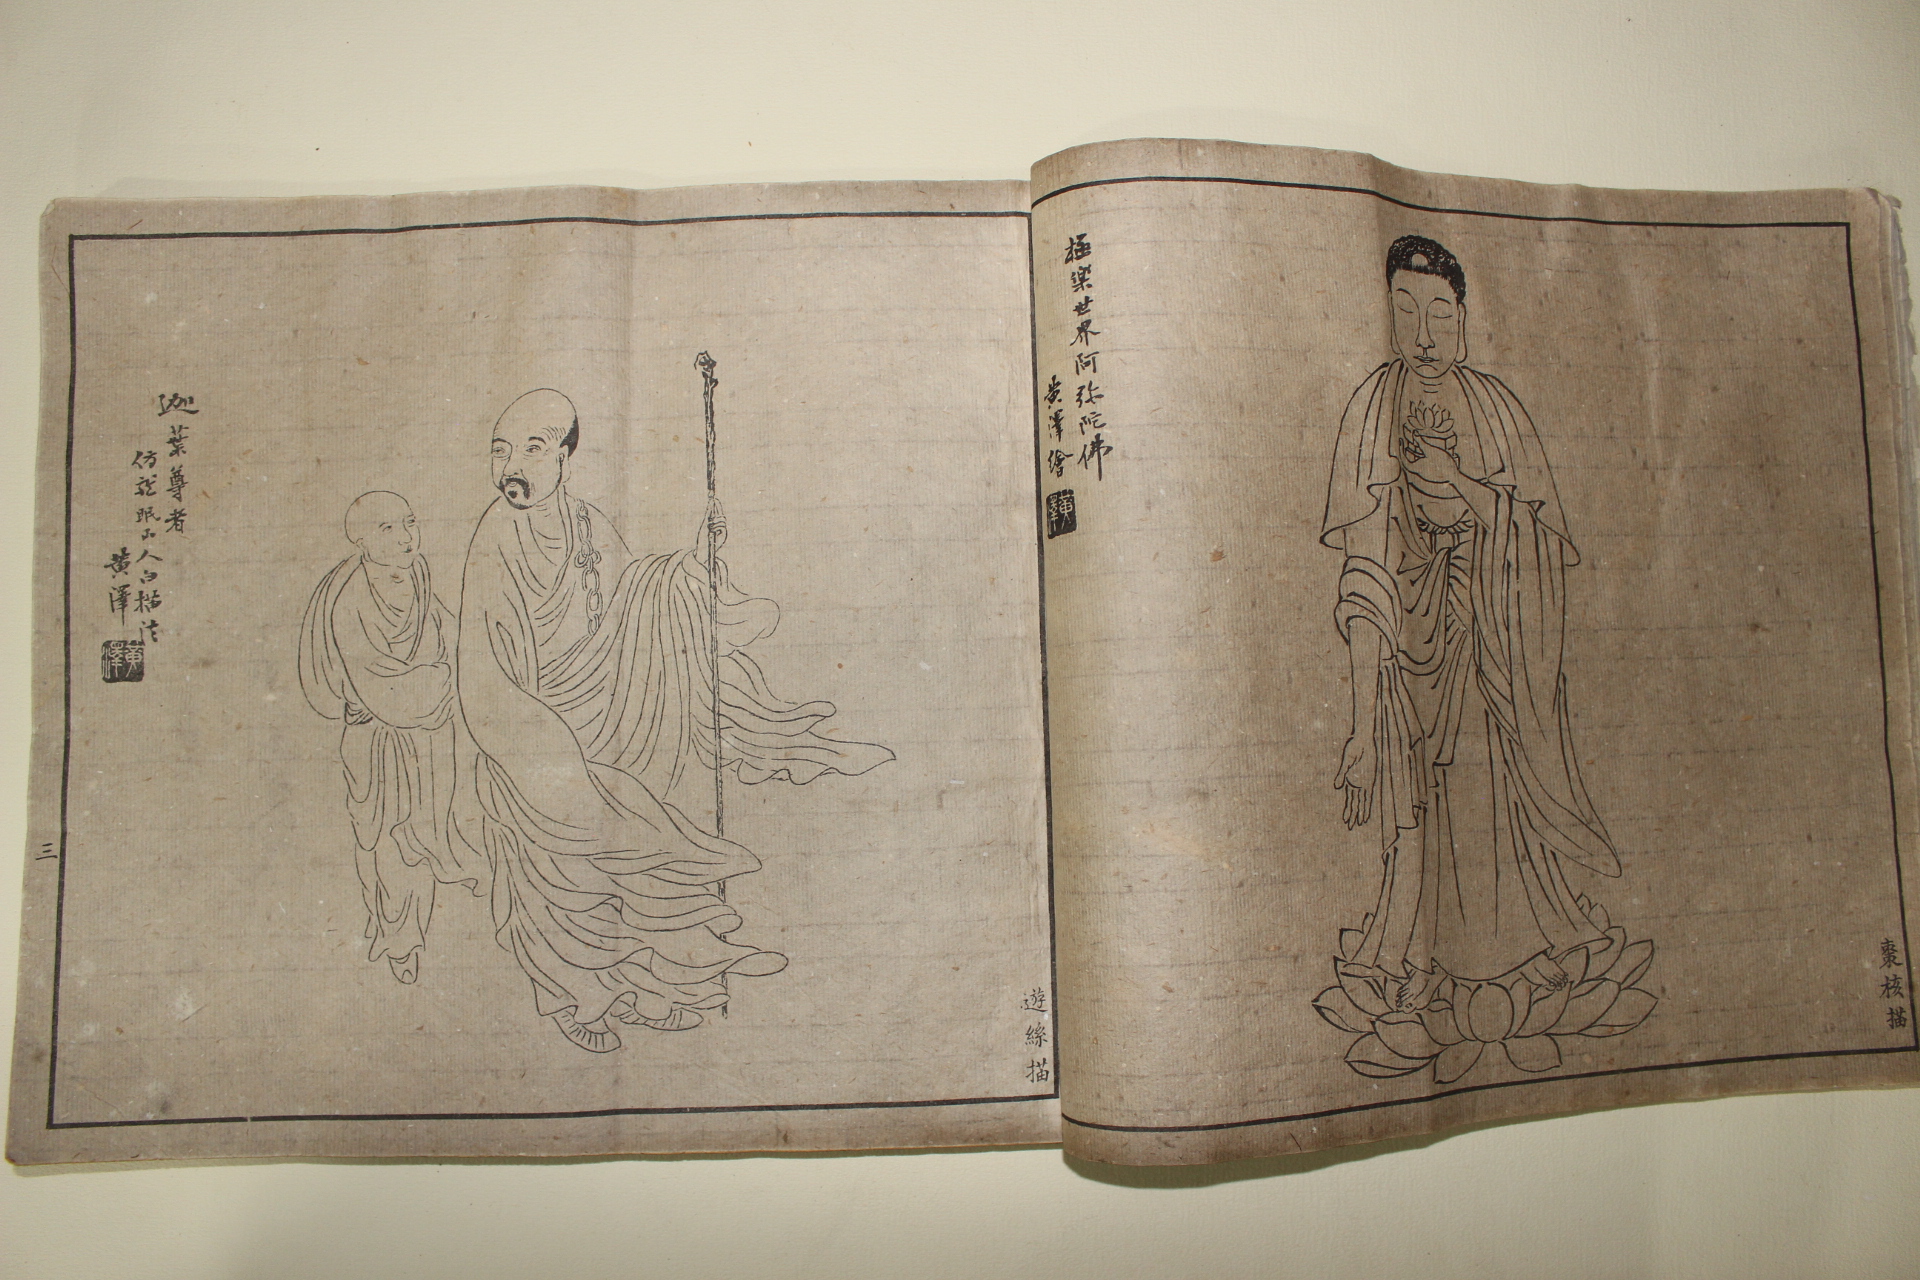 極樂世界阿弥陀佛
黄澤繪
黄澤
棗核描
迦葉尊者
仿龍眠山人白描法
黄澤
黄澤
遊絲描
三